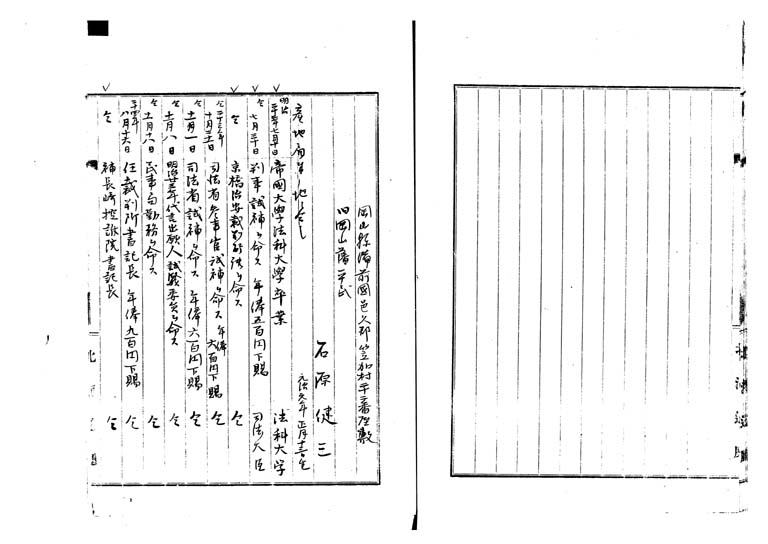 岡山縣備前國邑久郡笠加村十三番屋敷
旧岡山藩平民
石原健三
元治元年正月 生
産地 地
明治二十二年七月十日 帝國大學法科大學卒業 法科大學
仝七月三十日 判事試補ヲ命ス 年俸五百円下賜 司法大臣
仝 京橋治安裁判所詰ヲ命ス 仝
司法省参事官試補ヲ命ス 年俸六百円下賜 仝
仝十一月一日 司法省試補ヲ命ス 年俸六百円下賜 仝
仝十一月八日 明治廿三年代言出願人試験委員ヲ命ス 仝
仝十一月十八日 民事局勤務ヲ命ス 仝
二十四年八月十六日 任裁判所書記長 年俸九百円下賜 仝
仝 補長崎控訴院書記長 仝